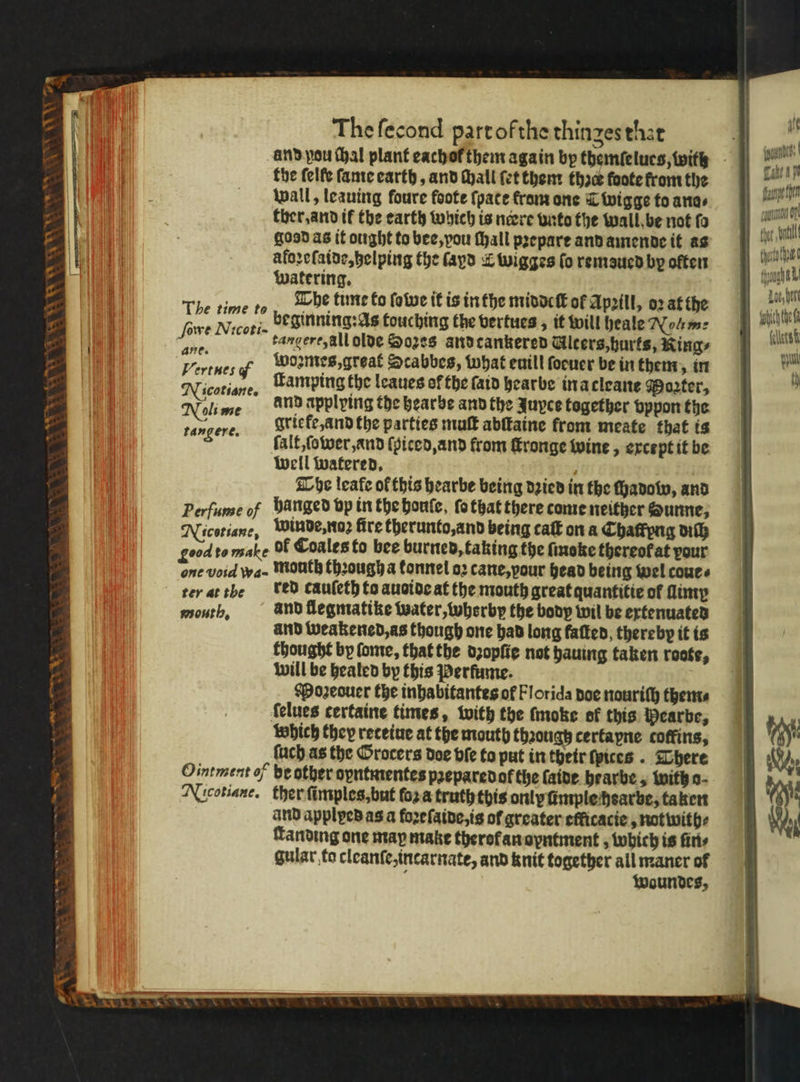 The second part of the thinges that
and you shal plant each of them again by themselues, with
the selfe same earth, and shall set them three foote from the
wall, leauing foure foote space from one twigge to ano-
ther, and if the earth which is neere vnto the wall, be not so
good as it ought to bee, you shall prepare and amende it as
aforesaide, helping the sayd twigges so remoued by often
watering.
The time to
sowe Nicoti-
ane.
The time to sowe it is in the middest of Aprill, or at the
beginning: As touching the vertues, it will heale Noli me
tangere, all olde Sores and cankered Vlcers, hurts, Ring-
Vertues of
Nicotiane.
Noli me
tangere.
wormes, great Scabbes, what euill soeuer be in them, in
stamping the leaues of the said hearbe in a cleane Morter,
and applying the hearbe and the Juyce together vppon the
griefe, and the parties must abstaine from meate that is
salt, sower, and spiced, and from stronge wine, except it be
well watered.
The leafe of this hearbe being dried in the shadow, and
Perfume of
Nicotiane,
good to make
one void wa-
ter at the
mouth.
hanged vp in the house, so that there come neither Sunne,
winde, nor fire therunto, and being cast on a Chaffyng dish
of Coales to bee burned, taking the smoke thereof at your
mouth through a fonnel or cane, your head being wel coue-
red causeth to auoide at the mouth great quantitie of slimy
and flegmatike water, wherby the body wil be extenuated
and weakened, as though one had long fasted, thereby it is
thought by some, that the dropsie not hauing taken roote,
will be healed by this Perfume.
Moreouer the inhabitantes of Florida doe nourish them-
selues certaine times, with the smoke of this Hearbe,
which they receiue at the mouth through certayne coffins,
such as the Grocers doe vse to put in their spices. There
Ointment of
Nicotiane.
be other oyntmentes prepared of the saide hearbe, with o-
ther simples, but for a truth this only simple hearbe, taken
and applyed as a foresaide, is of greater efficacie, notwith-
standing one may make therof an oyntment, which is sin-
gular, to cleanse, incarnate, and knit together all maner of
woundes,